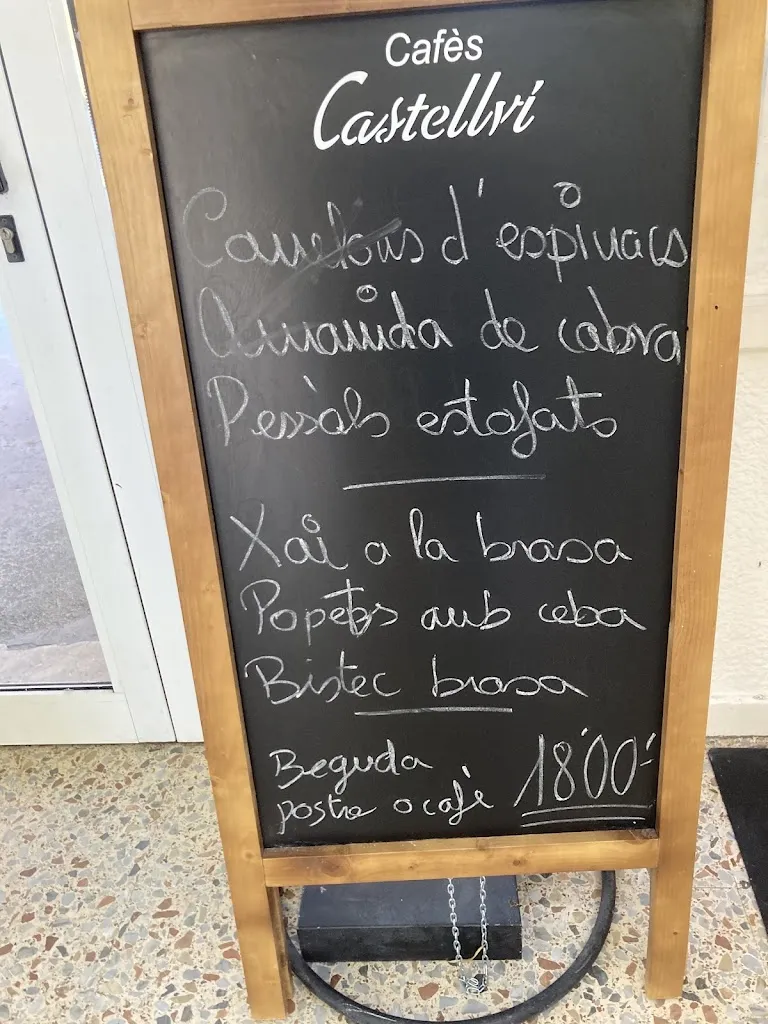 Cafès
Castellví
Canelons d'espinacs
Amanida de cabra
Pèsols estofats
Xai a la brasa
Popets amb ceba
Bistec brasa
Beguda
postre o cafè 18'00'-